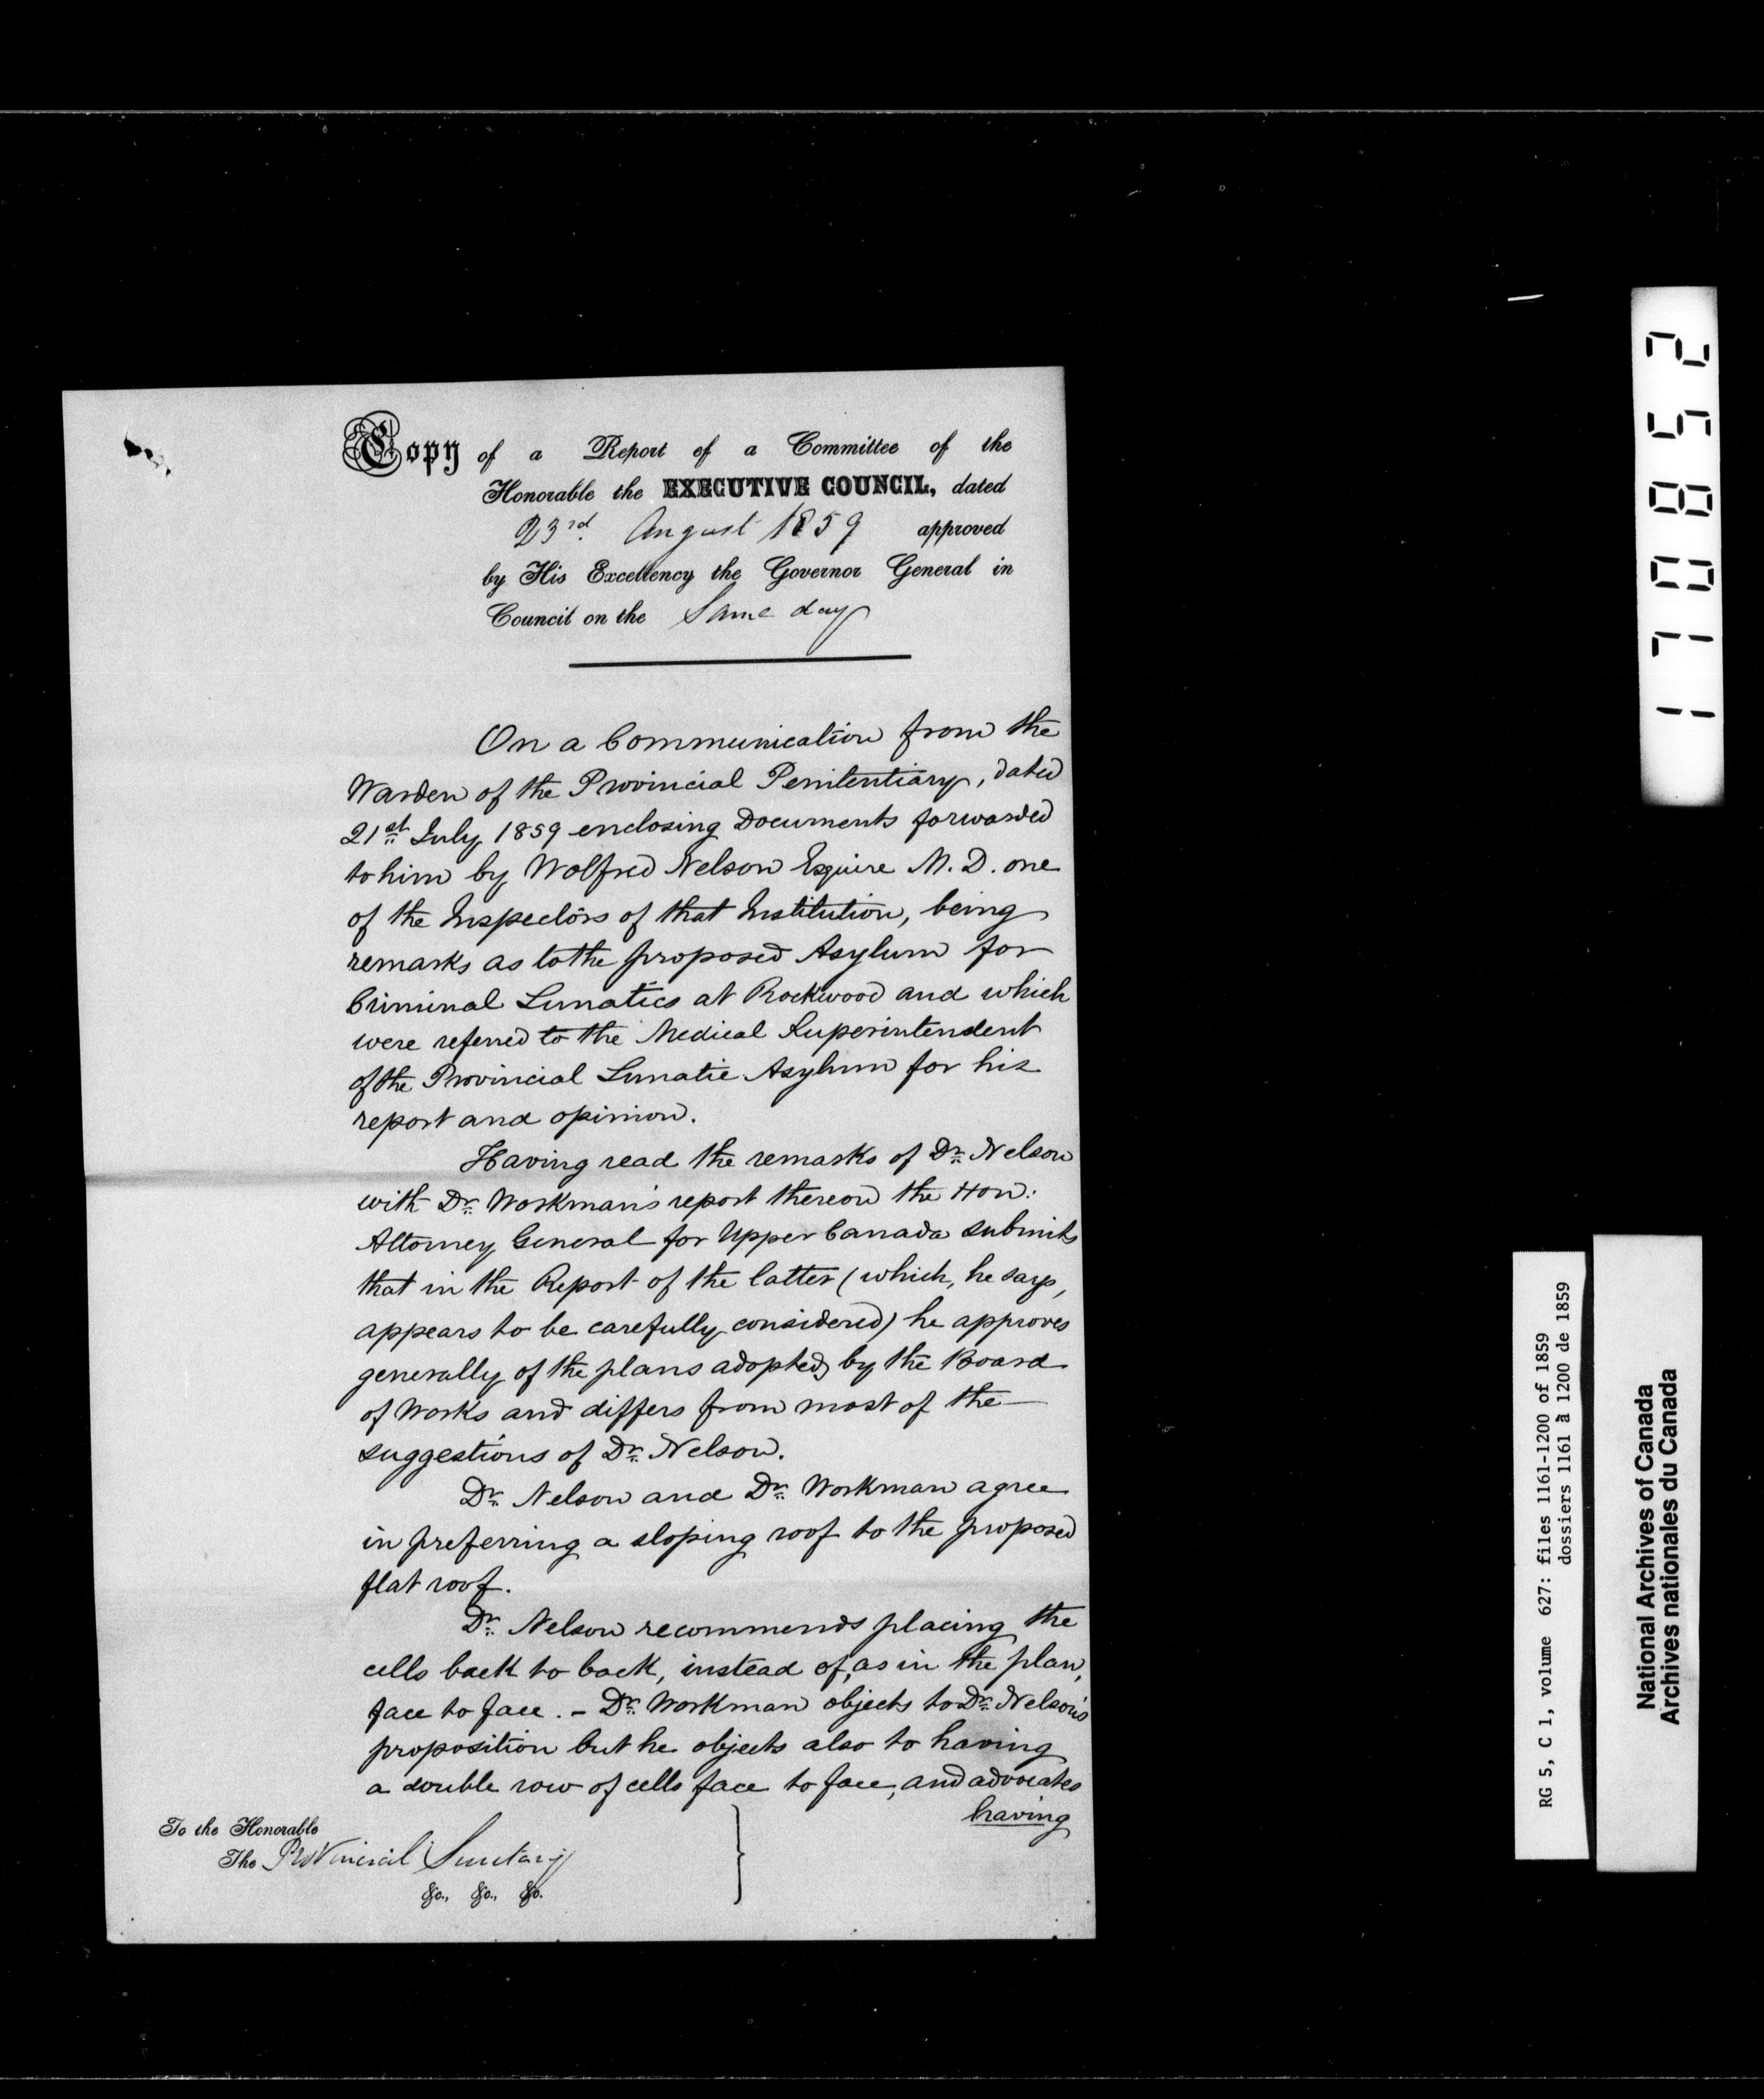 Copy of a Report of a Committee of the
Honorable the EXECUTIVE COUNCIL, dated
23rd. August 1859 approved
by His Excellency the Governor General in
Council on the Same day
On a Communication from the
Warden of the Provincial Penitentiary, dated
21st July 1859 enclosing Documents forwarded
to him by Wolfred Nelson Esquire M. D. one
of the Inspectors of that Institution, being
remarks as to the proposed Asylum for
Criminal Lunatics at Rockwood and which
were referred to the Medical Superintendent
of the Provincial Lunatic Asylum for his
report and opinion.
Having read the remarks of Dr. Nelson
with Dr. Workman's report thereon the Hon:
Attorney General for Upper Canada submits
that in the Report of the latter (which, he says,
appears to be carefully considered) he approves
generally of the plans adopted by the Board
of Works and differs from most of the
suggestions of Dr. Nelson.
Dr. Nelson and Dr. Workman agree
in preferring a sloping roof to the proposed
flat roof.
Dr. Nelson recommends placing the
cells back to back, instead of, as in the plan,
face to face. - Dr. Workman objects to Dr. Nelson's
proposition but he objects also to having
a double row of cells face to face, and advocates
having
To the Honorable
The Provincial Secretary
&c., &c., &c.
170852
RG 5, C 1, volume 627: files 1161-1200 of 1859
dossiers 1161 à 1200 de 1859
National Archives of Canada
Archives nationales du Canada